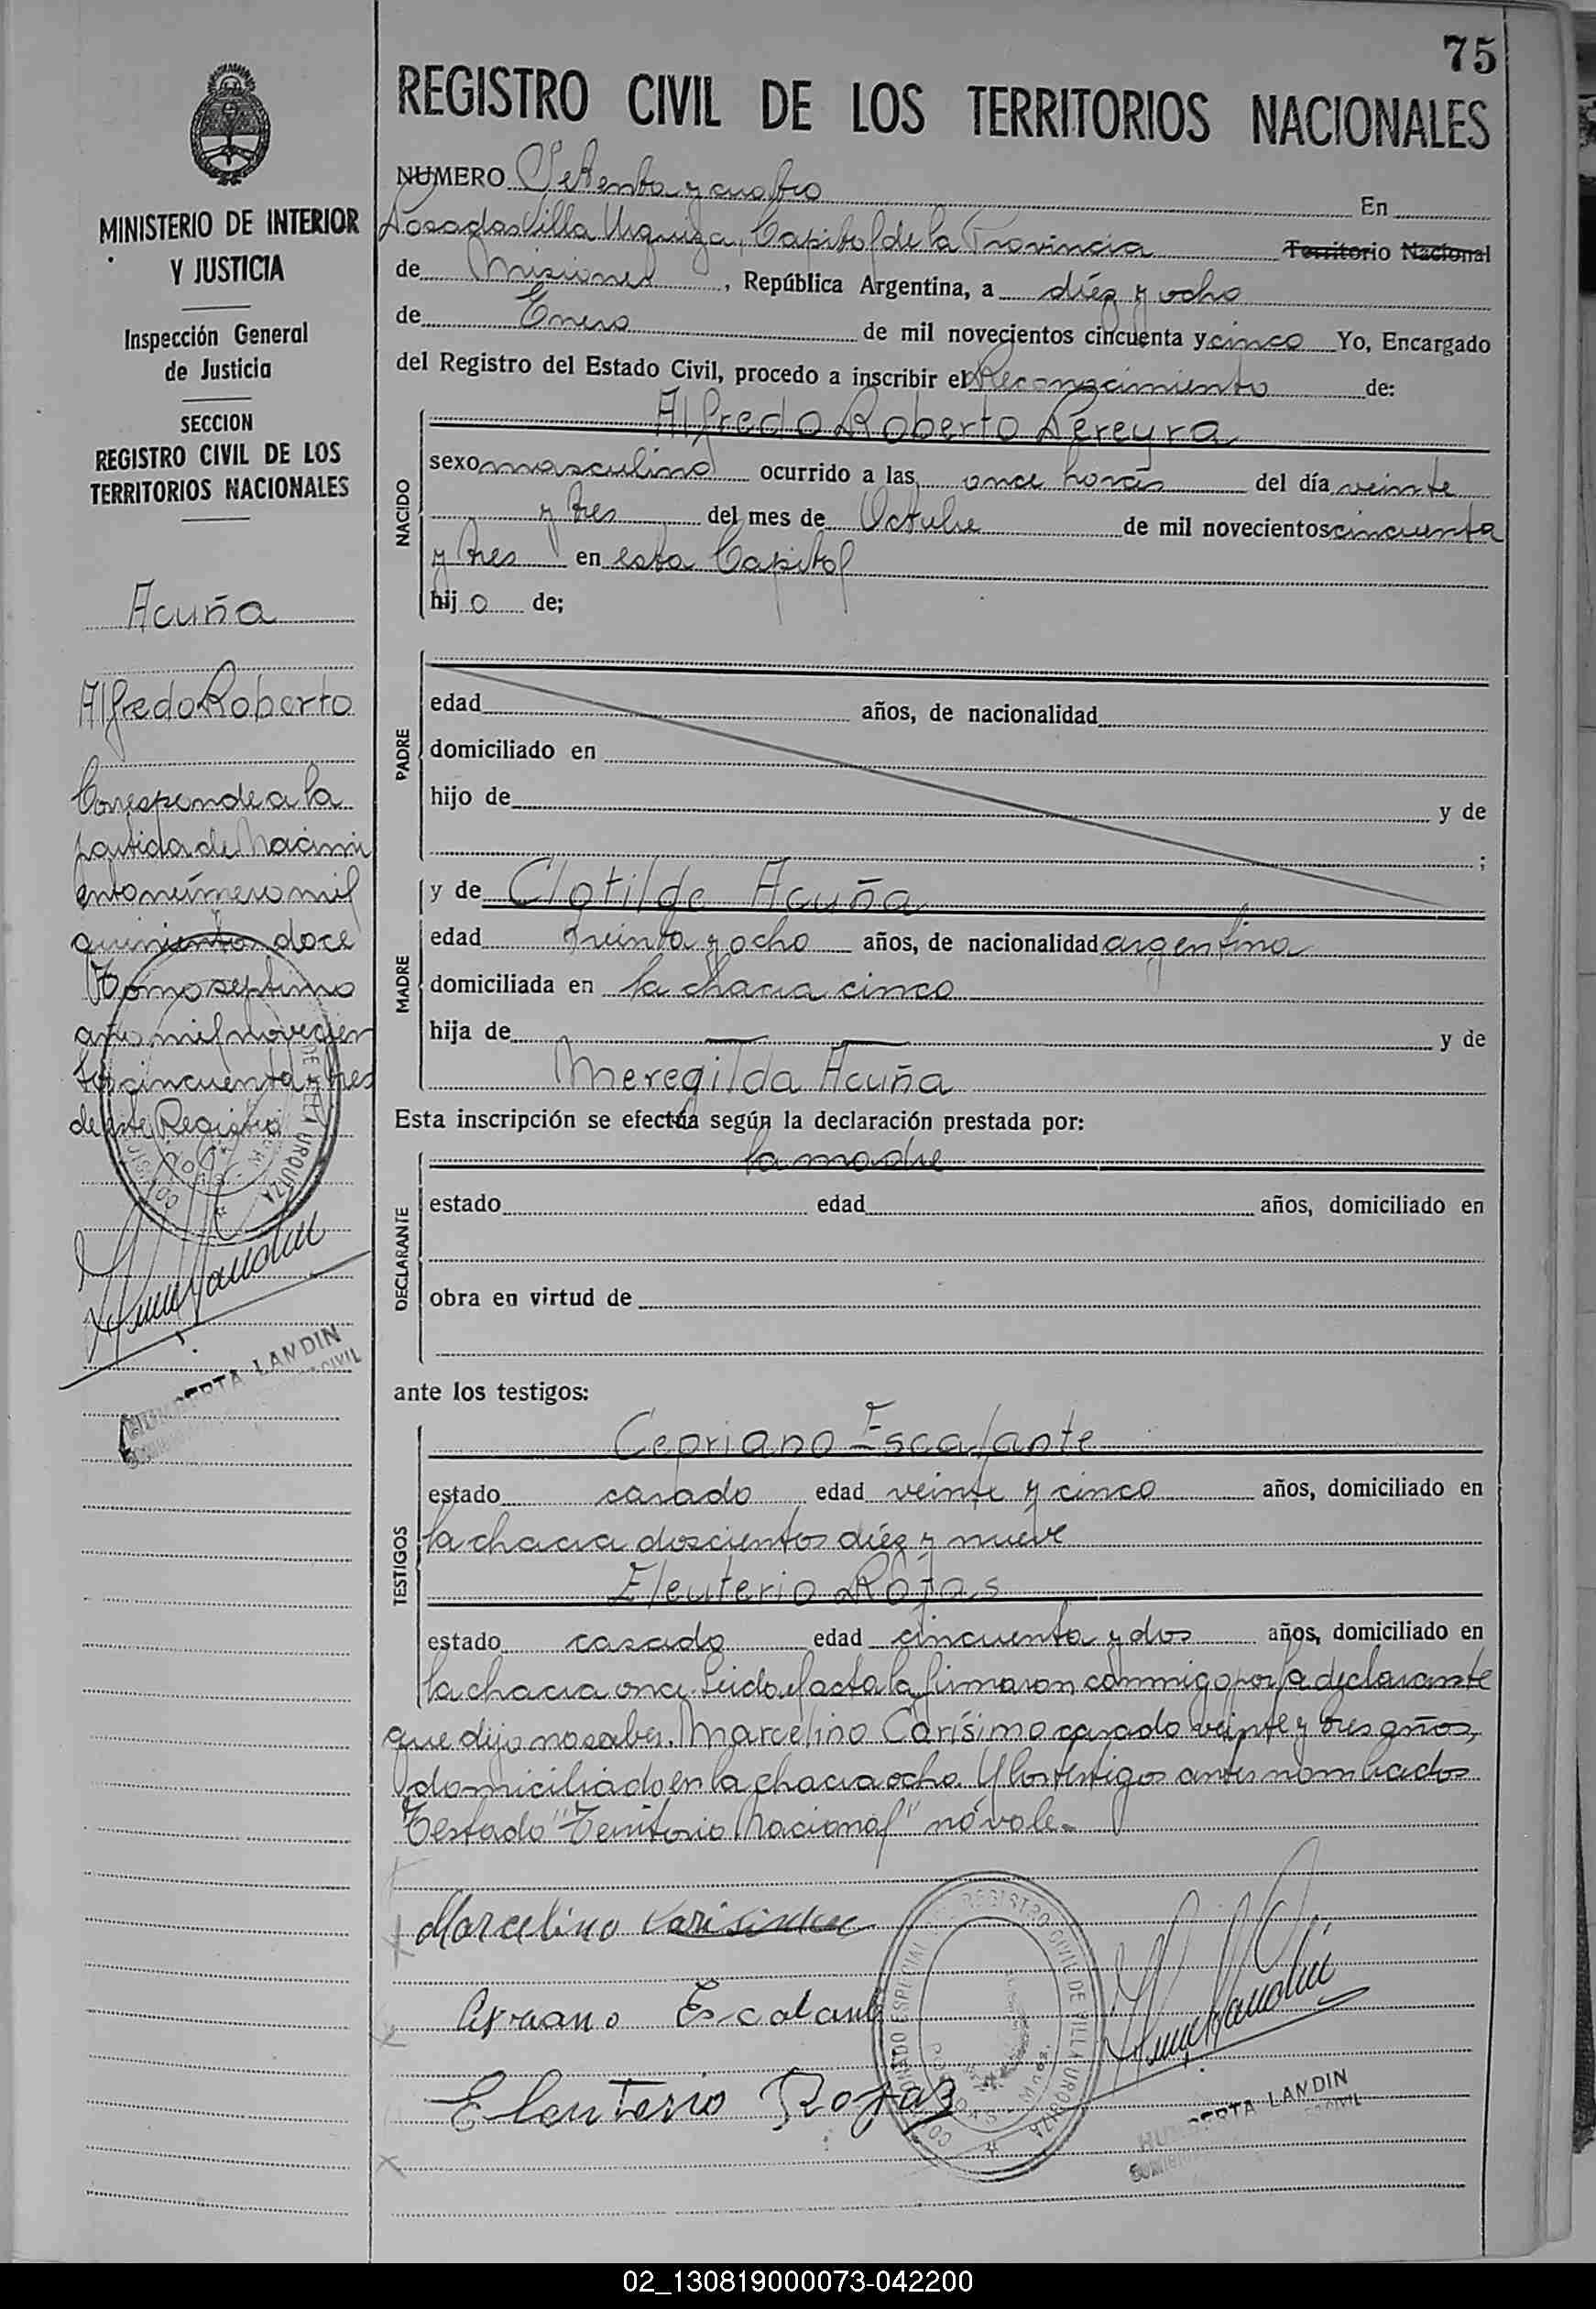 75
REGISTRO CIVIL DE LOS TERRITORIOS NACIONALES
MINISTERIO DE INTERIOR
Y JUSTICIA
Inspección General
de Justicia
SECCION
REGISTRO CIVIL DE LOS
TERRITORIOS NACIONALES
Acuña
Alfredo Roberto
Corresponde a la
partida de Nacimi
ento número mil
quinientos doce
Tomo septimo
año mil novecien
tos cincuenta y tres
de este Registro
HUMBERTA LANDIN
CIVIL
NUMERO Setenta y cuatro En
Posadas Villa Urquiza, Capital de la Provincia Territorio Nacional
de Misiones, República Argentina, a diéz y ocho
de Enero de mil novecientos cincuenta y cinco Yo, Encargado
del Registro del Estado Civil, procedo a inscribir el Reconocimiento de:
NACIDO
Alfredo Roberto Pereyra
sexo masculino ocurrido a las once horas del día veinte
y tres del mes de Octubre de mil novecientos cincuenta
y tres en esta Capital
hijo de;
PADRE
edad años, de nacionalidad
domiciliado en
hijo de y de
;
MADRE
y de Clotilde Acuña
edad treinta y ocho años, de nacionalidad argentina
domiciliada en la chacra cinco
hija de y de
Meregilda Acuña
Esta inscripción se efectúa según la declaración prestada por:
DECLARANTE
la madre
estado edad años, domiciliado en
obra en virtud de
ante los testigos:
TESTIGOS
Cepriano Escalante
estado casado edad veinte y cinco años, domiciliado en
la chacra doscientos diéz y nueve
Eleuterio Rojas
estado casado edad cincuenta y dos años, domiciliado en
la chacra once. Leido el acta la firmaron conmigo por la declarante
que dijo no saber. Marcelino Carísimo casado veinte y tres años,
domiciliado en la chacra ocho. Y los testigos antes nombrados
Testado "Territorio Nacional" no vale.
Marcelino Carisimo
Cipriano Escalante
Eleuterio Rojas
REGISTRO CIVIL DE VILLA URQUIZA
HUMBERTA LANDIN
CIVIL
02_130819000073-042200